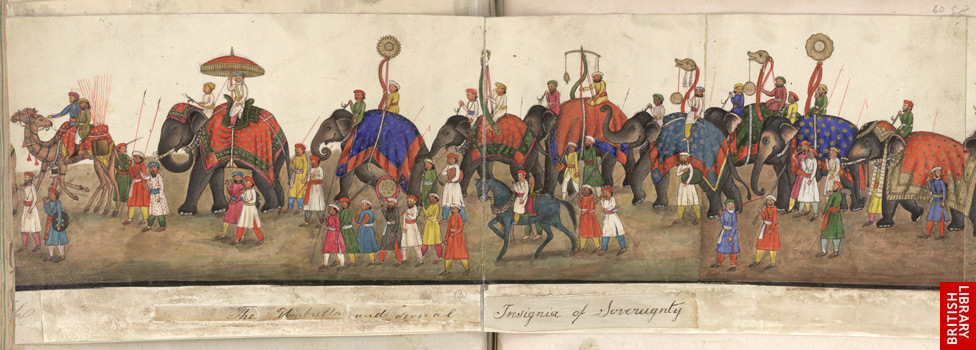 60
The Umbrella and several Insignia of Sovereignty
BRITISH
LIBRARY